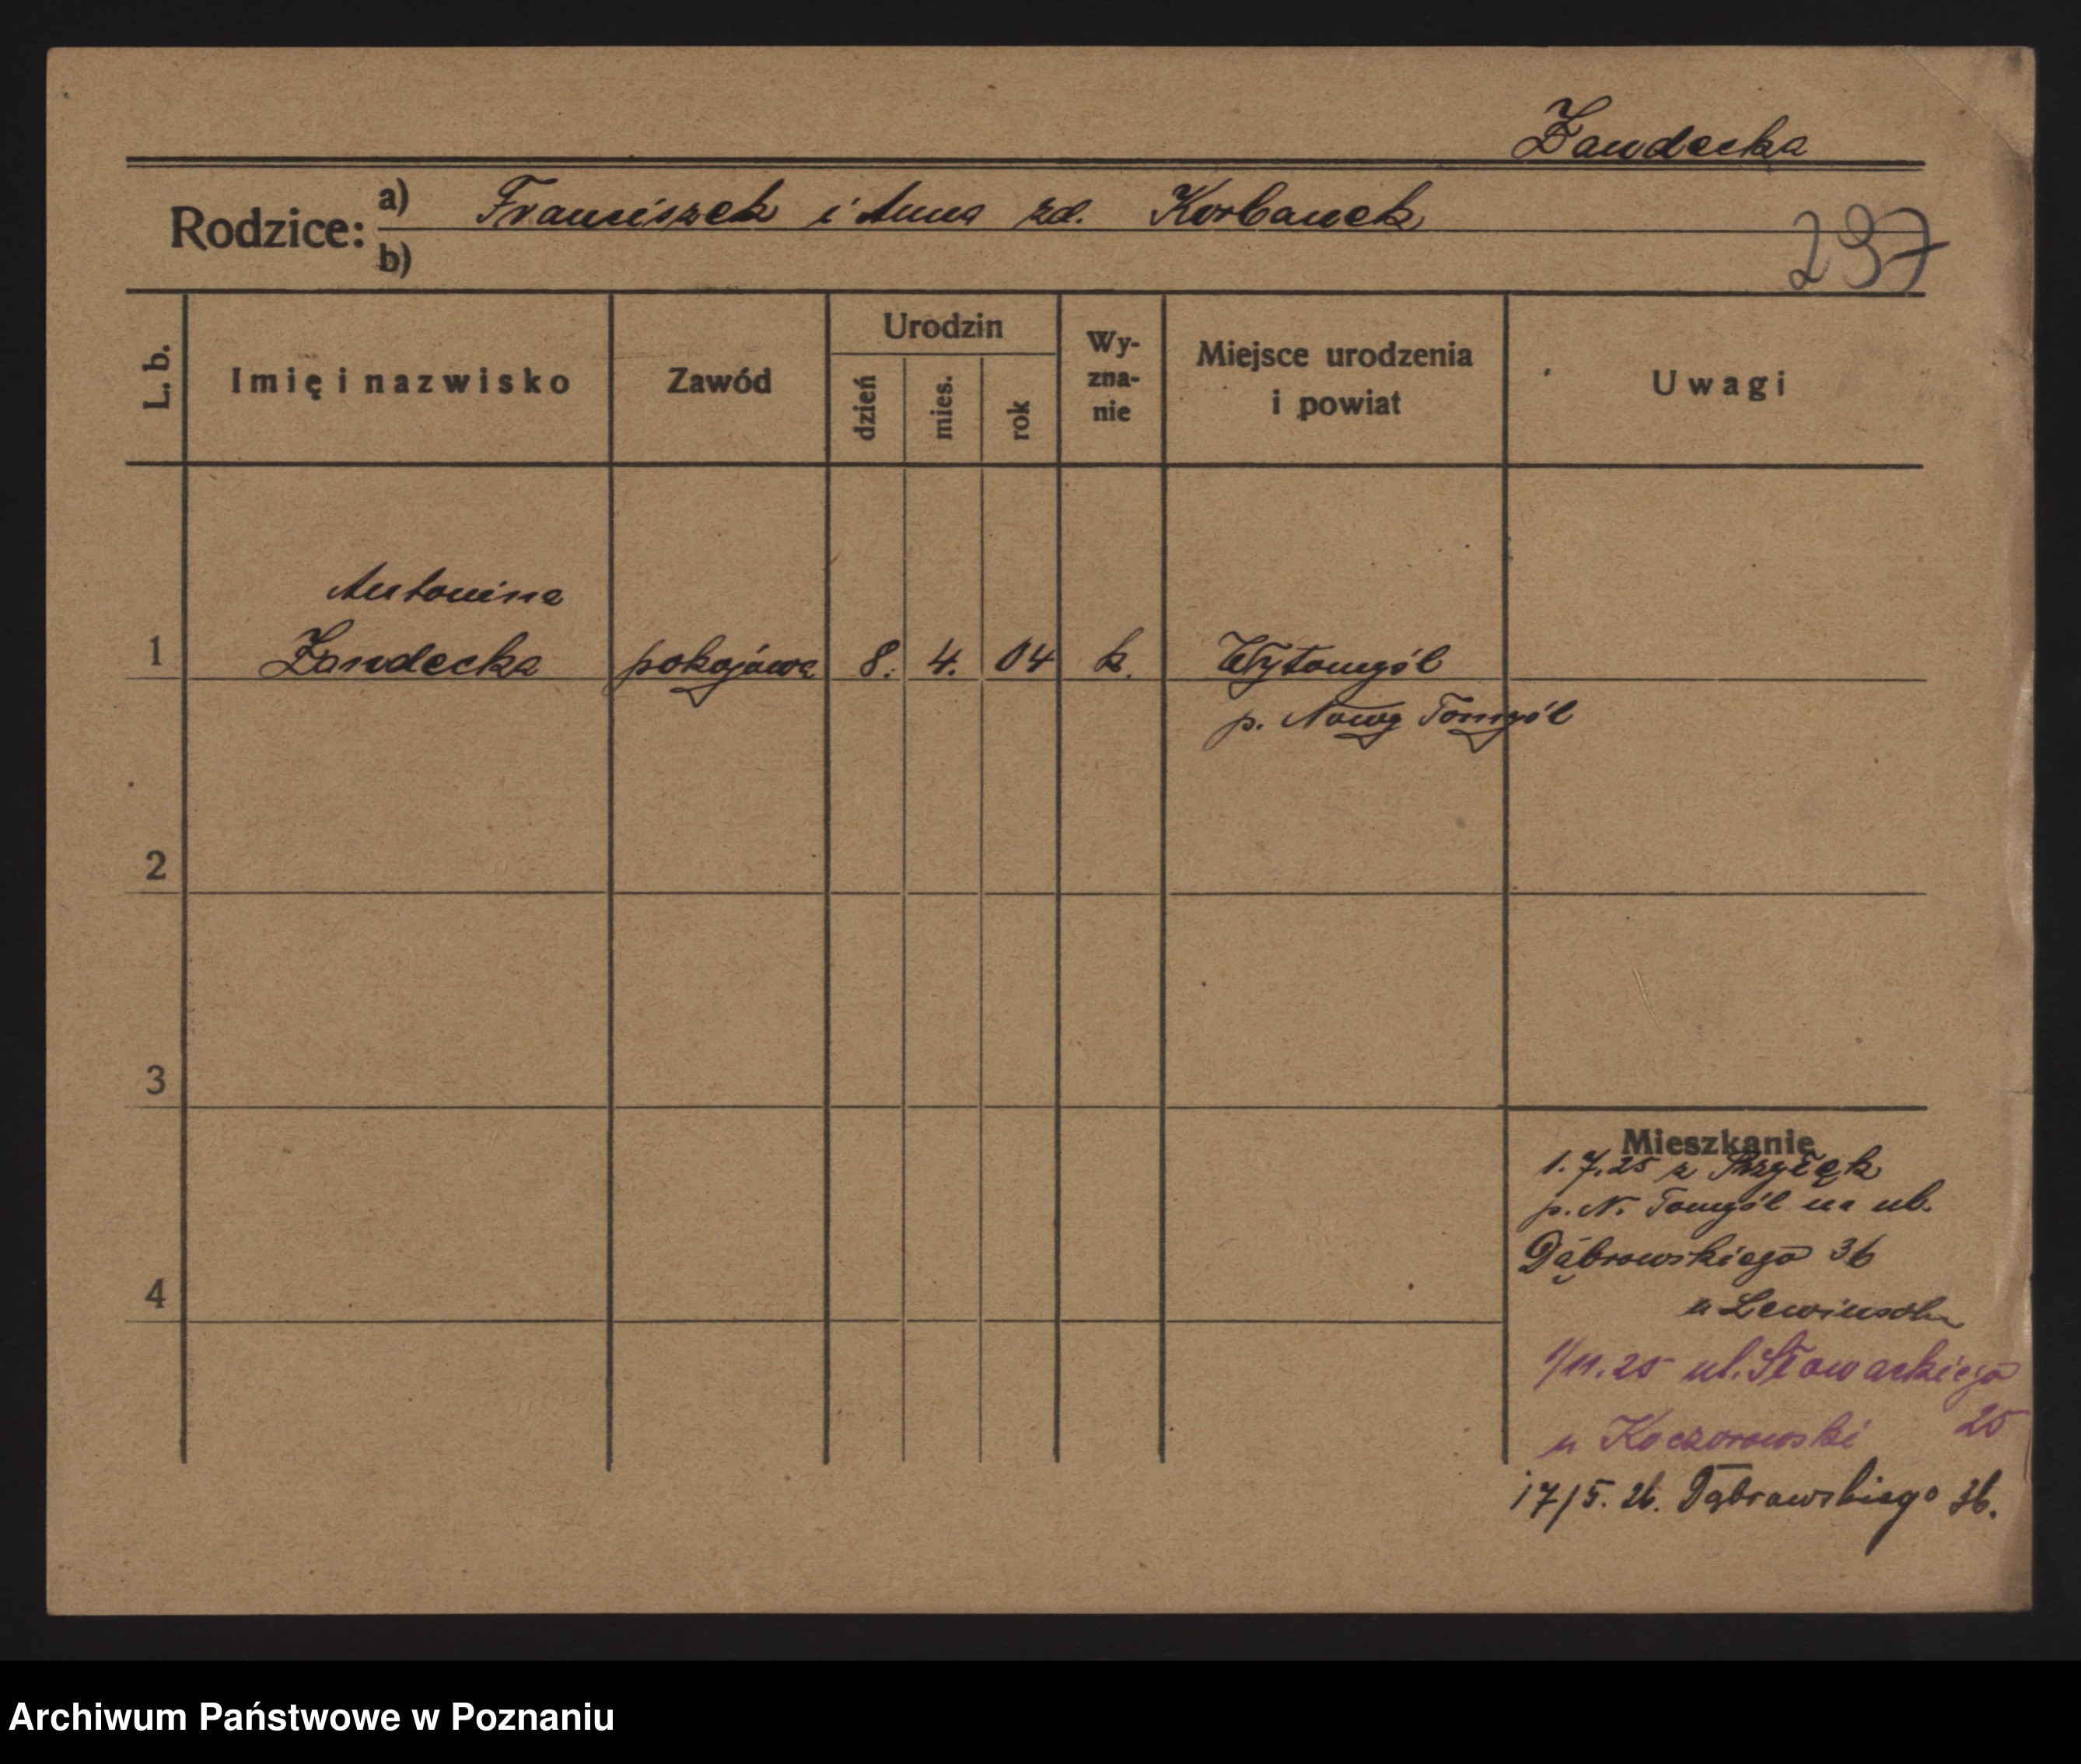 Żandecka
Rodzice: a) Franciszek i Anna zd. Korbanek
b)
297
L. b.
Imię i nazwisko
Zawód
Urodzin
dzień
mies.
rok
Wy-
zna-
nie
Miejsce urodzenia
i powiat
Uwagi
Antonina
1 Żandecka pokojówa 8. 4. 04 k. Wytomyśl
p. Nowy Tomyśl
2
3
Mieszkanie
1.7.25 z Przyłęk
p. N. Tomyśl na ul.
Dąbrowskiego 36
4
u Lewinsohn
1/11.25 ul. Słowackiego
25
u Koczorowski
17/5. 26. Dąbrowskiego 36.
Archiwum Państwowe w Poznaniu